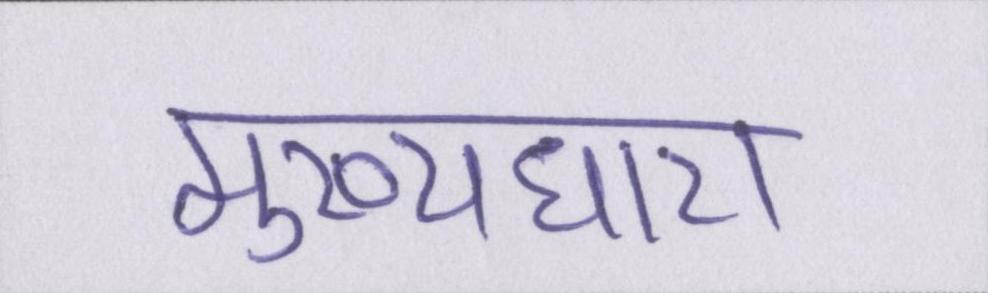 मुख्यधारा